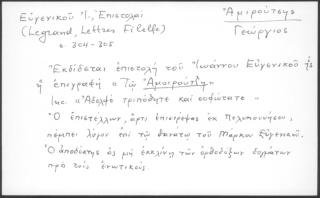 Εὐγενικοῦ Ἰ., Ἐπιστολαί
Ἀμιρούτζης
(Legrand, Lettres Filelfe)
Γεώργιος
σ. 304-305
Ἐκδίδεται ἐπιστολή τοῦ Ἰωάννου Εὐγενικοῦ ἧς
ἡ ἐπιγραφή "Τῷ Ἀμοιρούτζῃ"
Inc. "Ἀδελφέ τριπόθητε καί σοφώτατε"
Ὁ ἐπιστέλλων, ἄρτι ἐπιστρέψας ἐκ Πελοποννήσου,
πέμπει λόγον ἐπί τῷ θανάτῳ τοῦ Μάρκου Εὐγενικοῦ.
Ὁ ἀποδέκτης ὡς μή ἐκκλίνῃ τῶν ὀρθοδόξων δογμάτων
πρό τούς ἑνωτικούς.